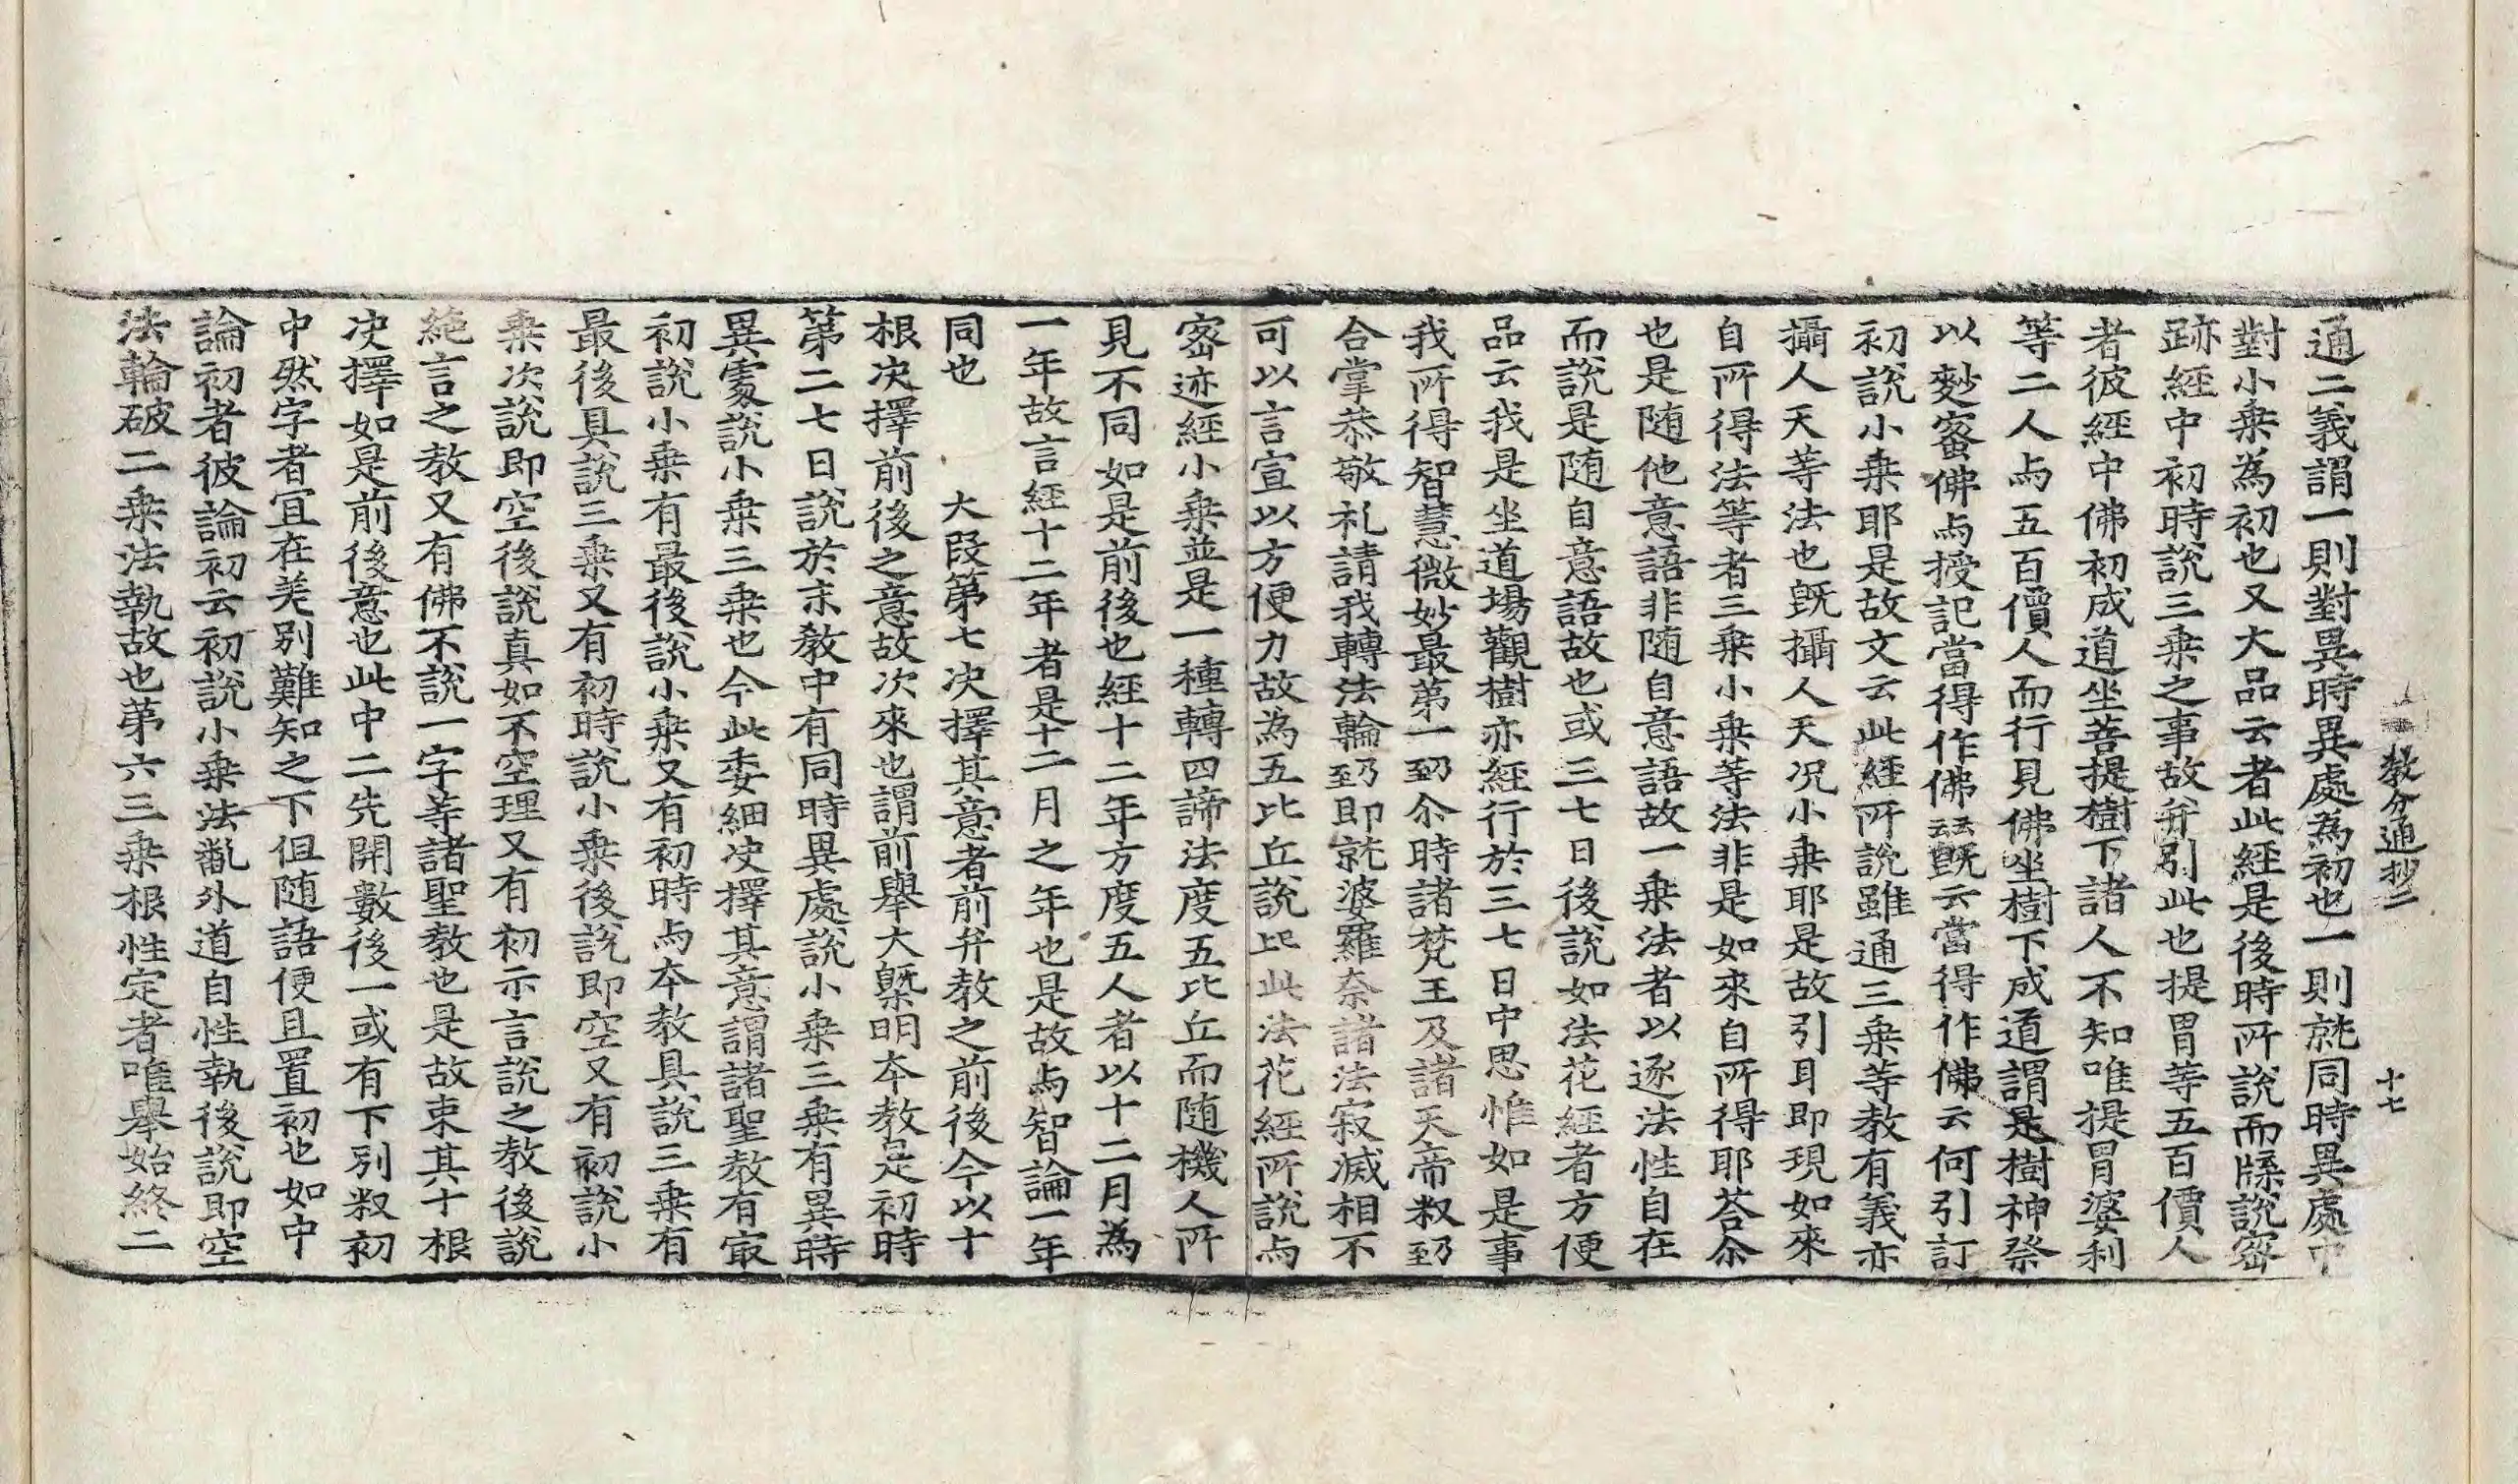 教分通抄二　十七
通二義謂一則對異時異處為初也一則就同時異處中
對小乗為初也又大品云者此經是後時所說而牒說密
跡經中初時說三乗之事故弁引此也提胃等五百價人
者彼經中佛初成道坐菩提樹下諸人不知唯提胃婆利
等二人与五百價人而行見佛坐樹下成道謂是樹神祭
以麨蜜佛与授記當得作佛云云旣云當得作佛云何引訂
初說小乗耶是故文云此經所說雖通三乗等教有義亦
攝人天等法也旣攝人天况小乗耶是故引耳即現如來
自所得法等者三乗小乗等法非是如來自所得耶荅尒
也是随他意語非随自意語故一乗法者以逐法性自在
而說是随自意語故也或三七日後說如法花經者方便
品云我是坐道場觀樹亦經行於三七日中思惟如是事
我所得智慧微妙最苐一㔫尒時諸梵王及諸天帝釈㔫
合掌恭敬礼請我轉法輪㔫即就婆羅奈諸法寂滅相不
可以言宣以方便力故為五比丘說比此法花經所說与
密迹經小乗並是一種轉四諦法度五比丘而随機人所
見不同如是前後也經十二年方度五人者以十二月為
一年故言經十二年者是十二月之年也是故与智論一年
同也　　大段苐七决擇其意者前弁教之前後今以十
根决擇前後之意故次來也謂前舉大槩明夲教是初時
第二七日說於末教中有同時異處說小乗三乗有異時
異處說小乗三乗也今此委細决擇其意謂諸聖教有㝡
初說小乗有最後說小乗又有初時与夲教具說三乗有
最後具說三乗又有初時說小乗後說即空又有初說小
乗次說即空後說真如不空理又有初示言說之教後說
絶言之教又有佛不說一字等諸聖教也是故束其十根
决擇如是前後意也此中二先開數後一或有下別釈初
中然字者冝在差別難知之下但随語便且置初也如中
論初者彼論初云初說小乗法亂外道自性執後說即空
法輪破二乗法執故也苐六三乗根性定者唯舉始終二